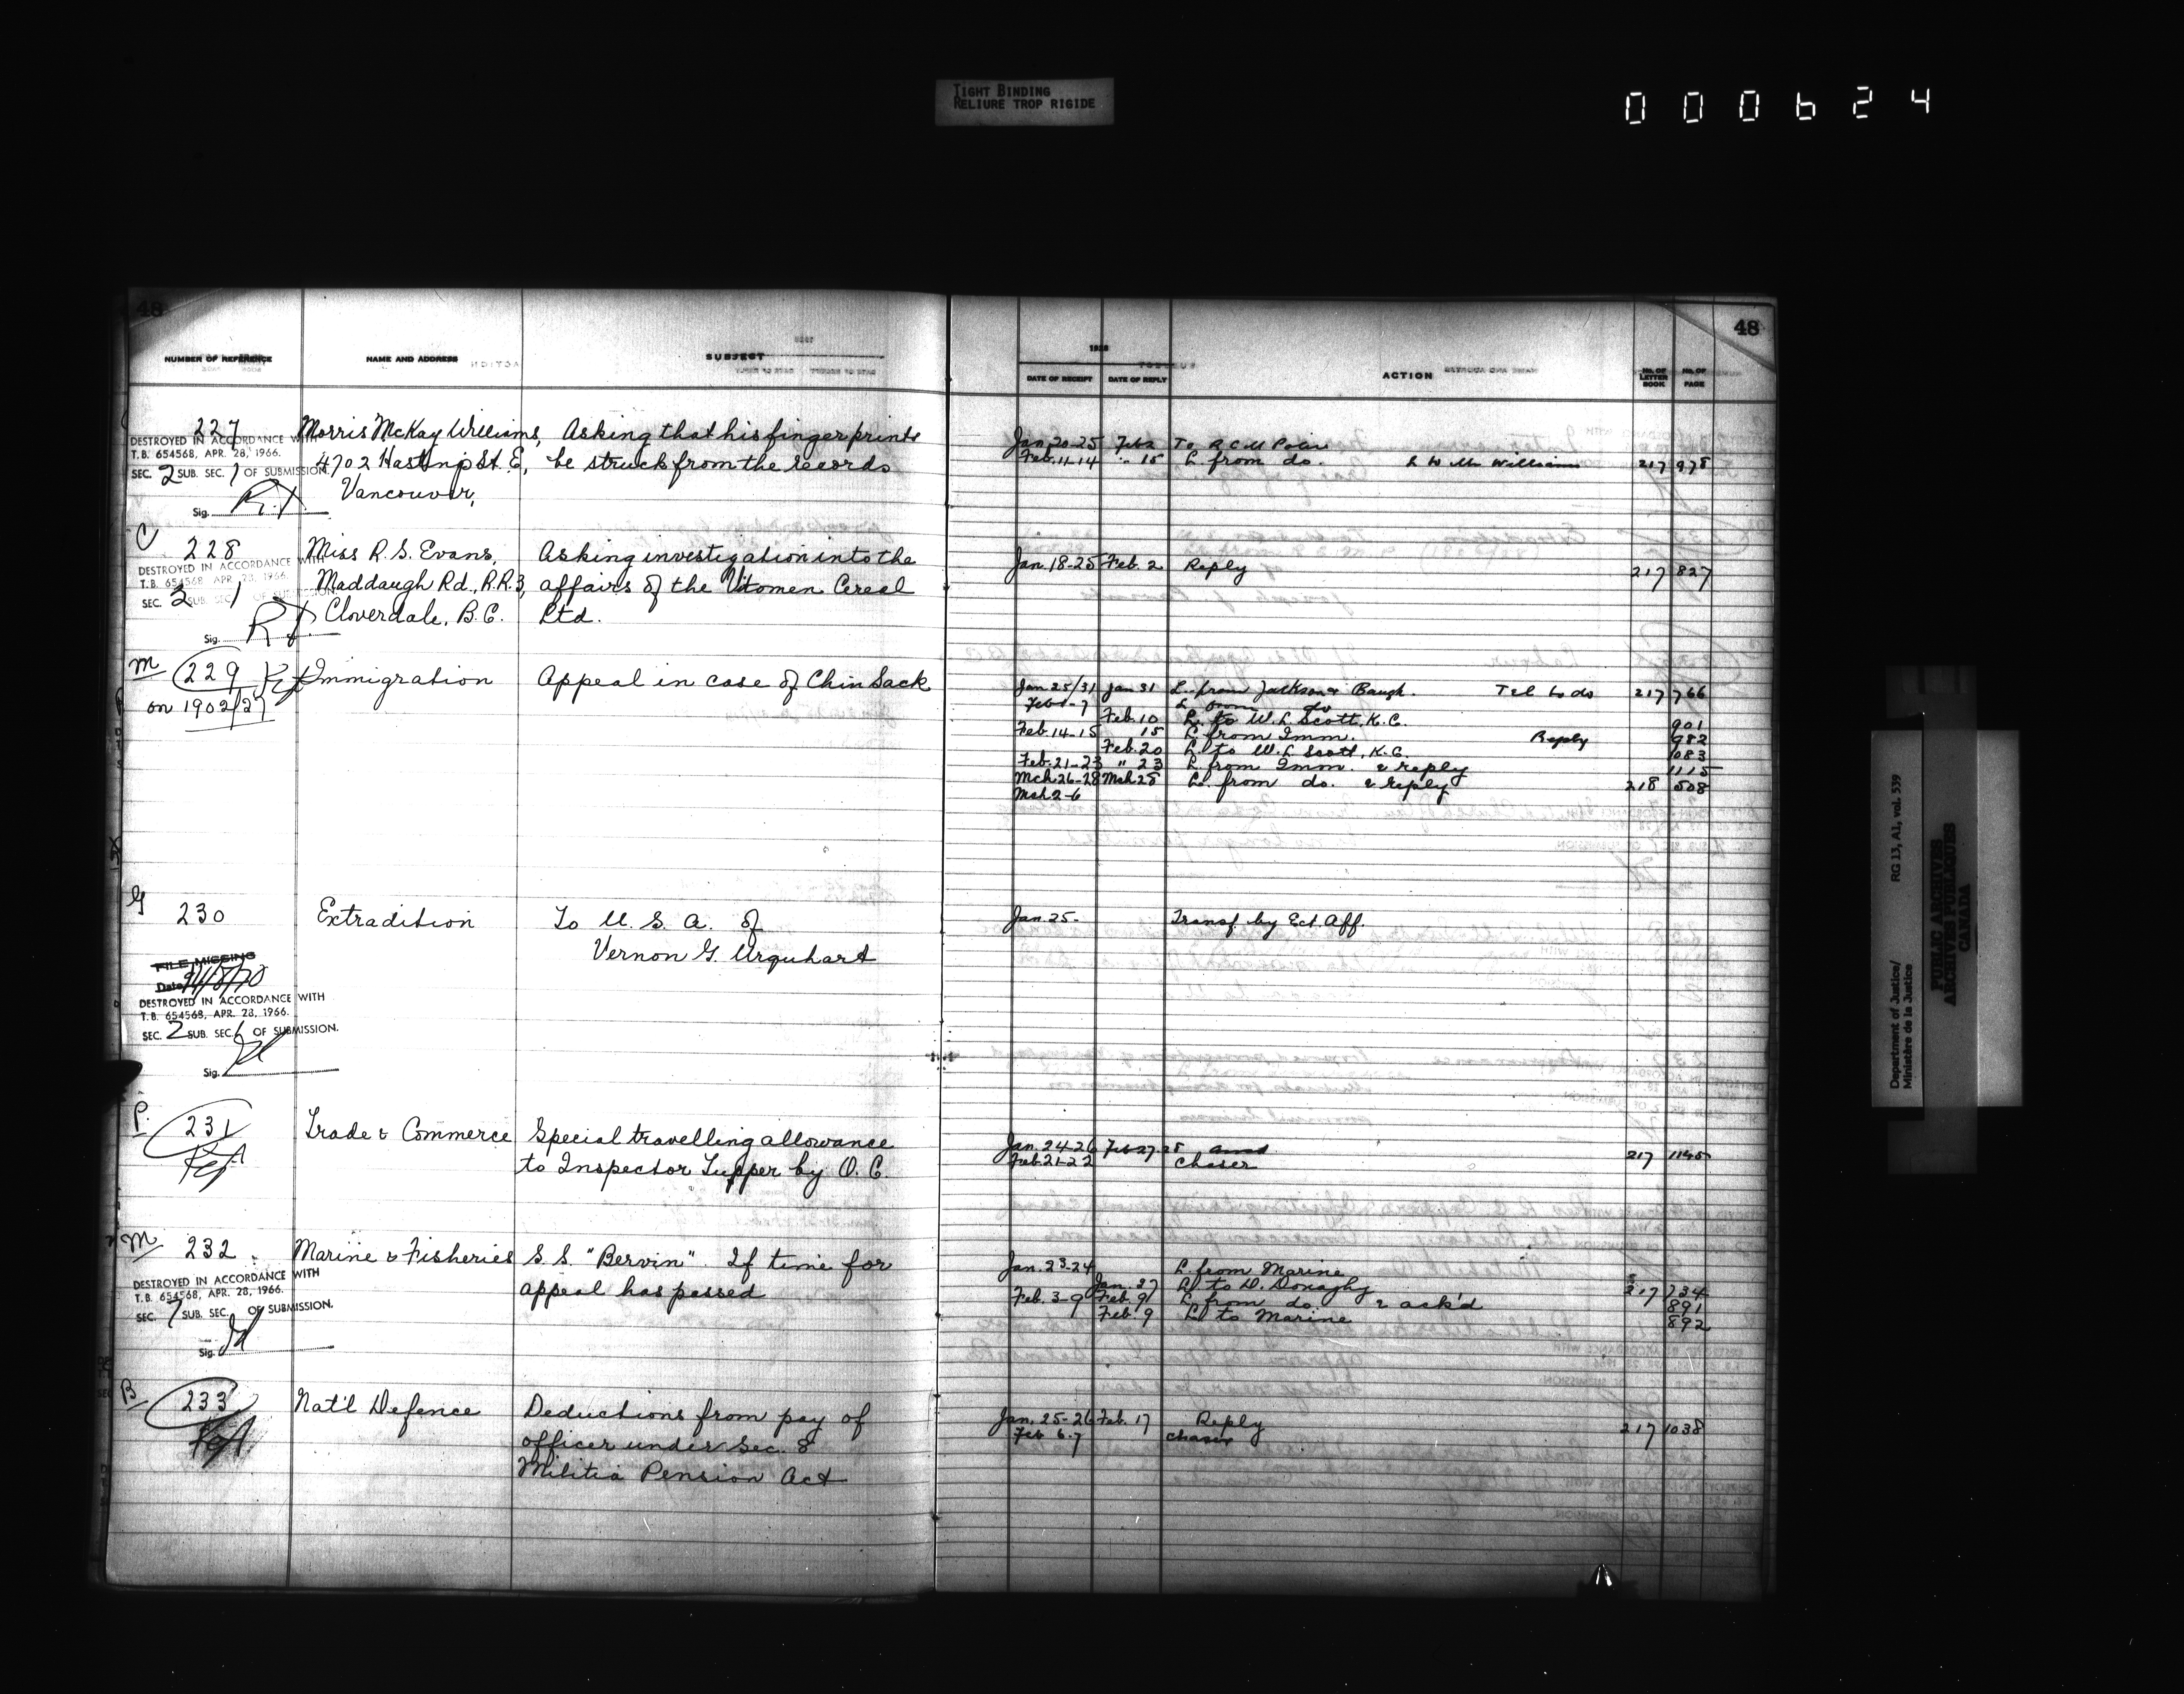 TIGHT BINDING
RELIURE TROP RIGIDE
000624
48
NUMBER OF REFERENCE
NAME AND ADDRESS
SUBJECT
227
DESTROYED IN ACCORDANCE WITH
T.B. 654568, APR. 28, 1966.
SEC. 2 SUB. SEC. 1 OF SUBMISSION.
Sig.
Morris McKay Williams,
4702 Hastings St. E,
Vancouver,
Asking that his fingerprints
be struck from the records
C
228
DESTROYED IN ACCORDANCE WITH
T.B. 654568 APR. 28, 1966.
SEC. 2 SUB. SEC. 1 OF SUBMISSION
Sig.
Miss R. S. Evans,
Maddaugh Rd., R.R.3,
Cloverdale, B.C.
Asking investigation into the
affairs of the Vitomen Cereal
Ltd.
M
229
on 1902/27
Immigration
Appeal in case of Chin Sack
G
230
FILE MISSING
Date
DESTROYED IN ACCORDANCE WITH
T.B. 654568, APR. 28, 1966.
SEC. 2 SUB. SEC. 6 OF SUBMISSION.
Sig.
Extradition
To U. S. A. of
Vernon G. Urquhart
P.
231
Trade & Commerce
Special travelling allowance
to Inspector Tupper by O. C.
M
232
DESTROYED IN ACCORDANCE WITH
T.B. 654568, APR. 28, 1966.
SEC. 7 SUB. SEC. OF SUBMISSION.
Sig.
Marine & Fisheries
S. S. "Bervin". If time for
appeal has passed
B
233
Nat'l Defence
Deductions from pay of
officer under Sec. 8
Militia Pension Act
48
1928
DATE OF RECEIPT
DATE OF REPLY
ACTION
No. OF LETTER BOOK
No. OF PAGE
Jan. 20-25 Feb 2 To R C M Police
Feb. 11-14 " 15 L. from do. L to Mr Williams 217 978
Jan. 18-25 Feb. 2 Reply 217 827
Jan 25/31 Jan 31 L. from Jackson & Baugh. Tel to do 217 766
Feb 1-7 L from do
Feb. 10 L. to W. L. Scott, K. C. 901
Feb. 14-15 15 L. from Imm. Reply 982
Feb. 20 L. to W. L Scott, K. C. 1083
Feb. 21-23 " 23 L. from Imm. & reply 1115
Mch 26-28 Mch 28 L. from do. & reply 218 508
Mch 2-6
Jan. 25- Transf. by Ext. Aff.
Jan. 24-26 Feb 27.28 217 1145
Feb. 21-22 Chaser
Jan. 23-24 L. from Marine
Jan. 27 L. to D. Donaghy 217 734
Feb. 3-9 Feb. 9 L from do. & ack'd 891
Feb. 9 L. to Marine 892
Jan. 25-26 Feb. 17 Reply 217 1038
Feb 6-7 Chaser
Department of Justice/ RG 13, A1, vol. 539
Ministère de la Justice
PUBLIC ARCHIVES
ARCHIVES PUBLIQUES
CANADA